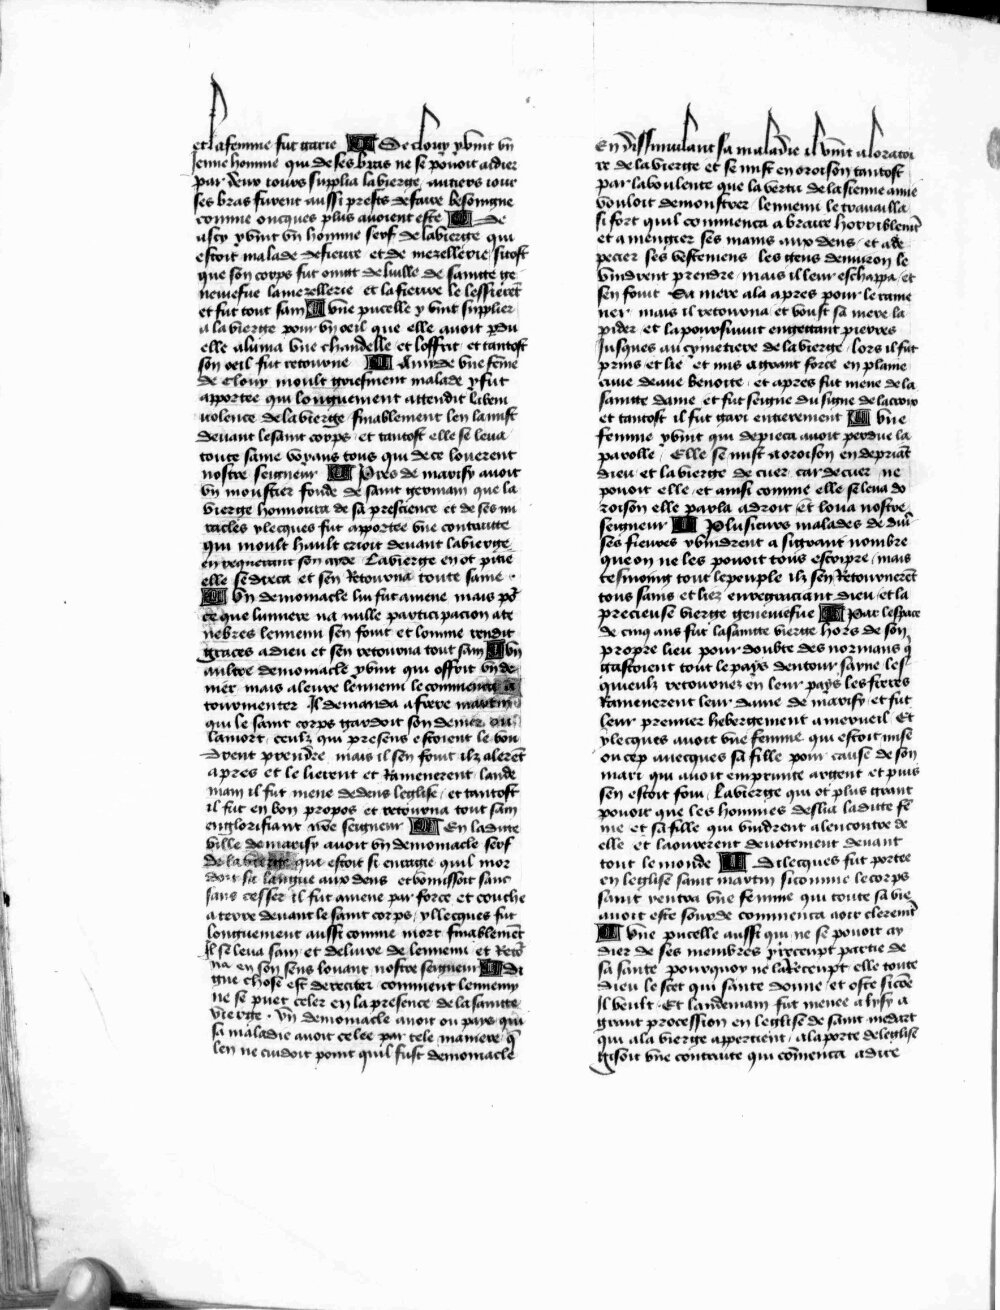 et la femme fut garie De clouy y vint vn
ienne homme qui de ses bras ne se pouoit aidier
par deux iours supplia la vierge au tiers iour
ses bras furent aussi prests de faire besoingne
comme oncques plus auoient este De
uscy y vint vn homme serf de la vierge qui
estoit malade de fieure et de mezellerie sitost
que son corps fut oingt de luille de saincte ge
neuiefue la mezellerie et la fieure le lessierent
et fut tout sain vne pucelle y vint supplier
a la vierge pour vn oeil que elle auoit pdu
elle aluma vne chandelle et loffrit et tantost
son oeil fut retourne Ainde vne feme
de clouy moult griefment malade y fut
apportee qui longuement attendit la beni
uolence de la vierge finablement len la mist
deuant le saint corps et tantost elle se leua
toute saine voyans tous qui de ce louerent
nostre seigneur Pres de marisy auoit
vn moustier fonde de saint germain que la
vierge honnoura de sa prescience et de ses mi
racles ylecques fut apportee vne contraitte
qui moult hault crioit deuant la vierge
en requerant son ayde La vierge en ot pitie
elle se dreca et sen Retourna toute saine
Vn demoniacle lui fut amene mais por
ce que lumiere na nulle participacion a te
nebres lennemi sen fouit et lomme rendit
graces a dieu et sen retourna tout sain vn
aultre demoniacle y vint qui offroit vn de
nier mais a leure lennemi le commenca a
tourmenter Il demanda a frere martin
qui le saint corps gardoit son denier ou
la mort ceulz qui presens estoient le vou
drent prendre mais il sen fouit ilz alerent
apres et le lierent et Ramenerent lande
main il fut mene dedens leglise et tantost
il fut en bon propos et retourna tout sain
englorifiant nre seigneur En la ditte
ville de marisy auoit vn demoniacle serf
de la vierge qui estoit si enragie quil mor
doit sa langue aux dens et vomissoit sanc
sans cesser il fut amene par force et couche
a terre deuant le saint corps yllecques fut
longuement aussi comme mort finablement
Il se leua sain et deliure de lennemi et Reto
na en son sens louant nostre seigneur Di
gne chose est de reciter comment lennemy
ne se puet celer en la presence de la saincte
vierge Vn demoniacle auoit ou pays qui
sa maladie auoit celee par tele maniere q
len ne cuidoit point quil fust demoniacle
En dissimulant sa maladie il vint a loratoi
re de la vierge et se mist en oroison tantost
par la voulente que la vertu de la sienne amie
vouloit demonstrer lennemi le trauailla
si fort quil commenca a braire horriblemt
et a mengier ses mains aux dens et a de
pecier ses vestemens les gens denuiron le
vindrent prendre mais il leur eschappa et
sen fouit Sa mere ala apres pour le rame
ner mais il retourna et voust sa mere la
pider et la poursuiuit en gettant pierres
Jusques au cymetiere de la vierge lors il fut
prins et lie et mis a grant force en plaine
cuue deaue benoite et apres fut mene de la
saincte dame et fut seigne du signe de la croix
et tantost il fut gari entierement Vne
femme y vint qui de pieca auoit perdue la
parolle Elle se mist a oroison en depriant
dieu et la vierge de cuer car de cuer ne
pouoit elle et ainsi comme elle se leua do
roison elle parla a droit et loua nostre
seigneur Plusieurs malades de diu
ses fieures y vindrent a si grant nombre
que on ne les pouoit tous escripre mais
tesmoing tout le peuple ilz sen Retournerent
tous sains et liez en regraciant dieu et la
precieuse vierge geneuiefue Par lespace
de cinq ans fut la saincte vierge hors de son
propre lieu pour doubte des normans q
gastoient tout le pays dentour sayne les
quieulz retournez en leur pays les freres
Ramenerent leur dame de marisy et fut
leur premier hebergement a merueil Et
ylecques auoit vne femme qui estoit mise
ou cep auecques sa fille pour cause de son
mari qui auoit emprunte argent et puis
sen estoit foui La vierge qui ot plus grant
pouoir que les hommes deslia la ditte fe
me et sa fille qui vindrent alencontre de
elle et laourerent deuotement deuant
tout le monde Dilecques fut portee
en leglise saint martin si comme le corps
saint rentra vne femme qui toute sa vie
auoit este sourde commenca a oir clerement
Vne pucelle aussi qui ne se pouoit ay
dier de ses membres y receupt partie de
sa sante pourquoy ne la Receupt elle toute
dieu le scet qui sante donne et oste si coe
Il veult Et landemain fut menee a lysy a
grant procession en leglise de saint medart
qui a la vierge appertient a la porte de leglise
gisoit vne contraite qui comenca a dire